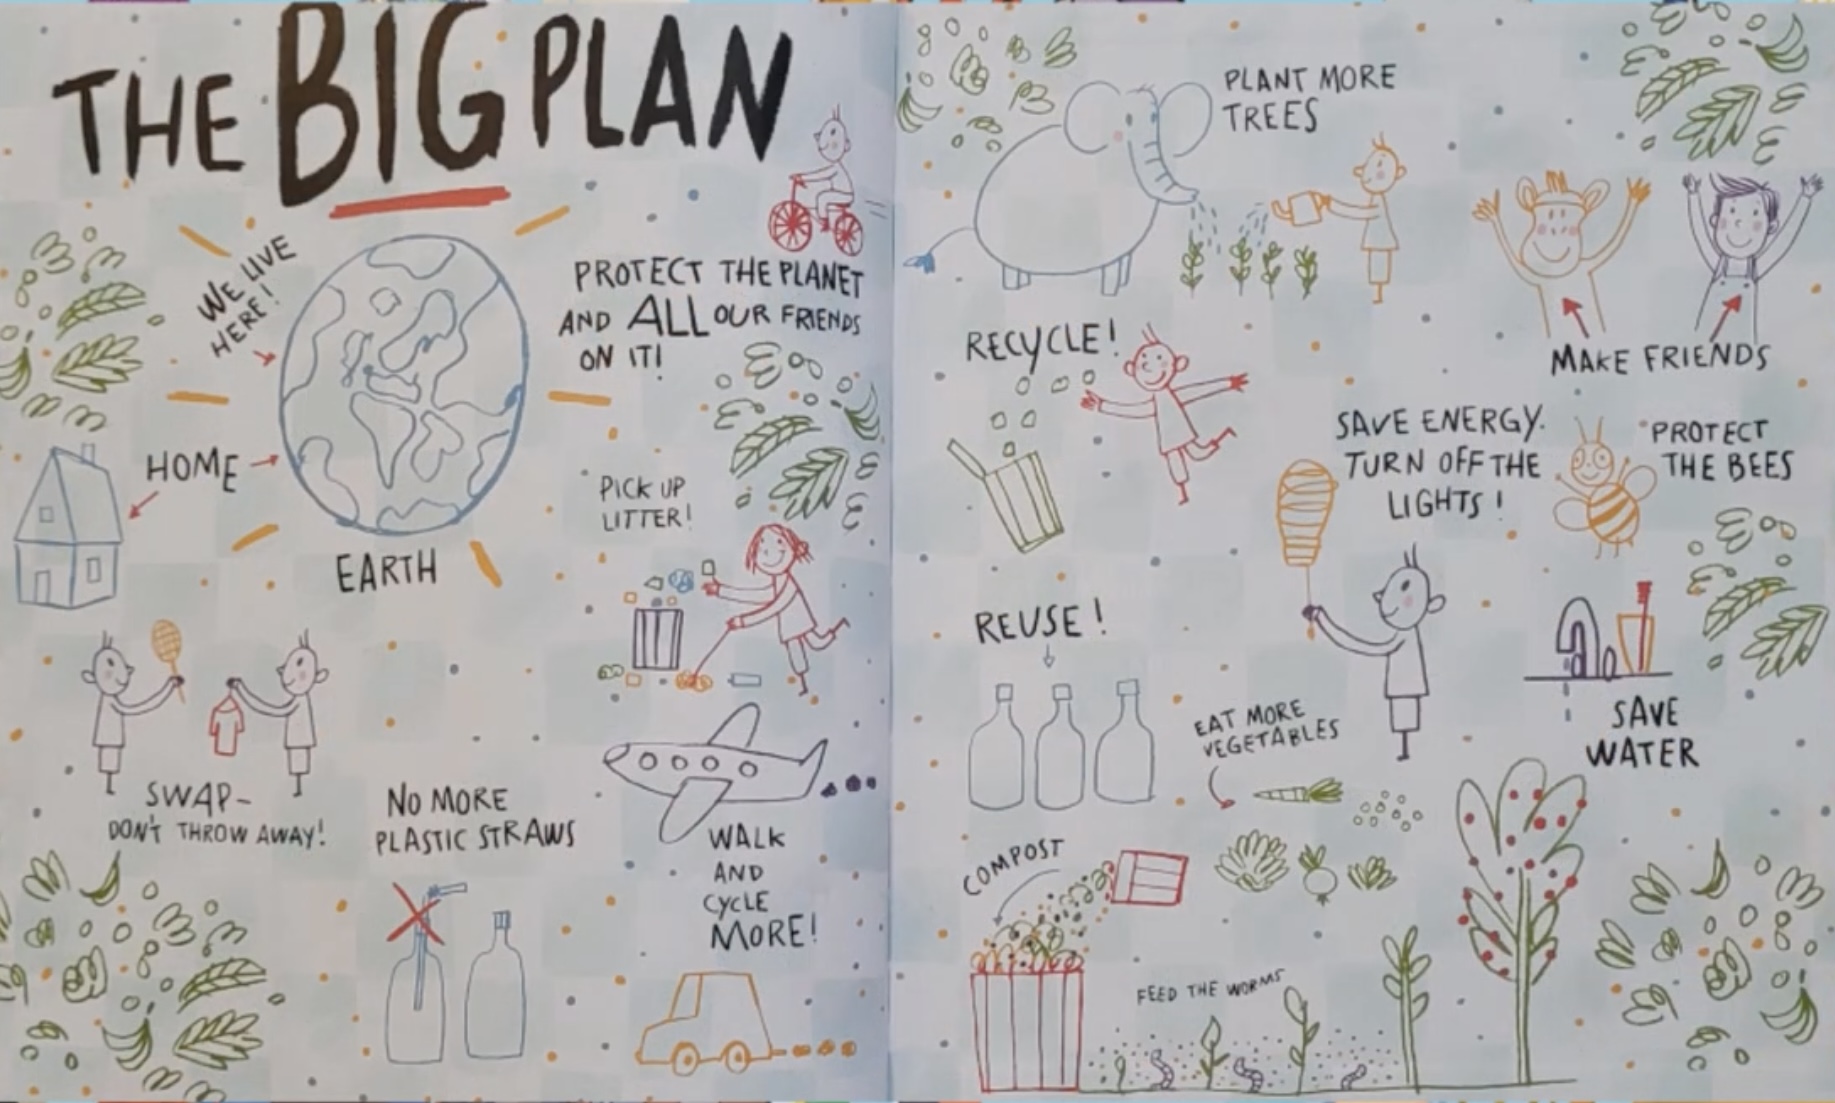 THE BIG PLAN
WE LIVE
HERE!
PROTECT THE PLANET
AND ALL OUR FRIENDS
ON IT!
HOME
EARTH
PICK UP
LITTER!
SWAP-
DON'T THROW AWAY!
NO MORE
PLASTIC STRAWS
WALK
AND
CYCLE
MORE!
PLANT MORE
TREES
RECYCLE!
MAKE FRIENDS
SAVE ENERGY.
TURN OFF THE
LIGHTS!
PROTECT
THE BEES
REUSE!
EAT MORE
VEGETABLES
SAVE
WATER
COMPOST
FEED THE WORMS